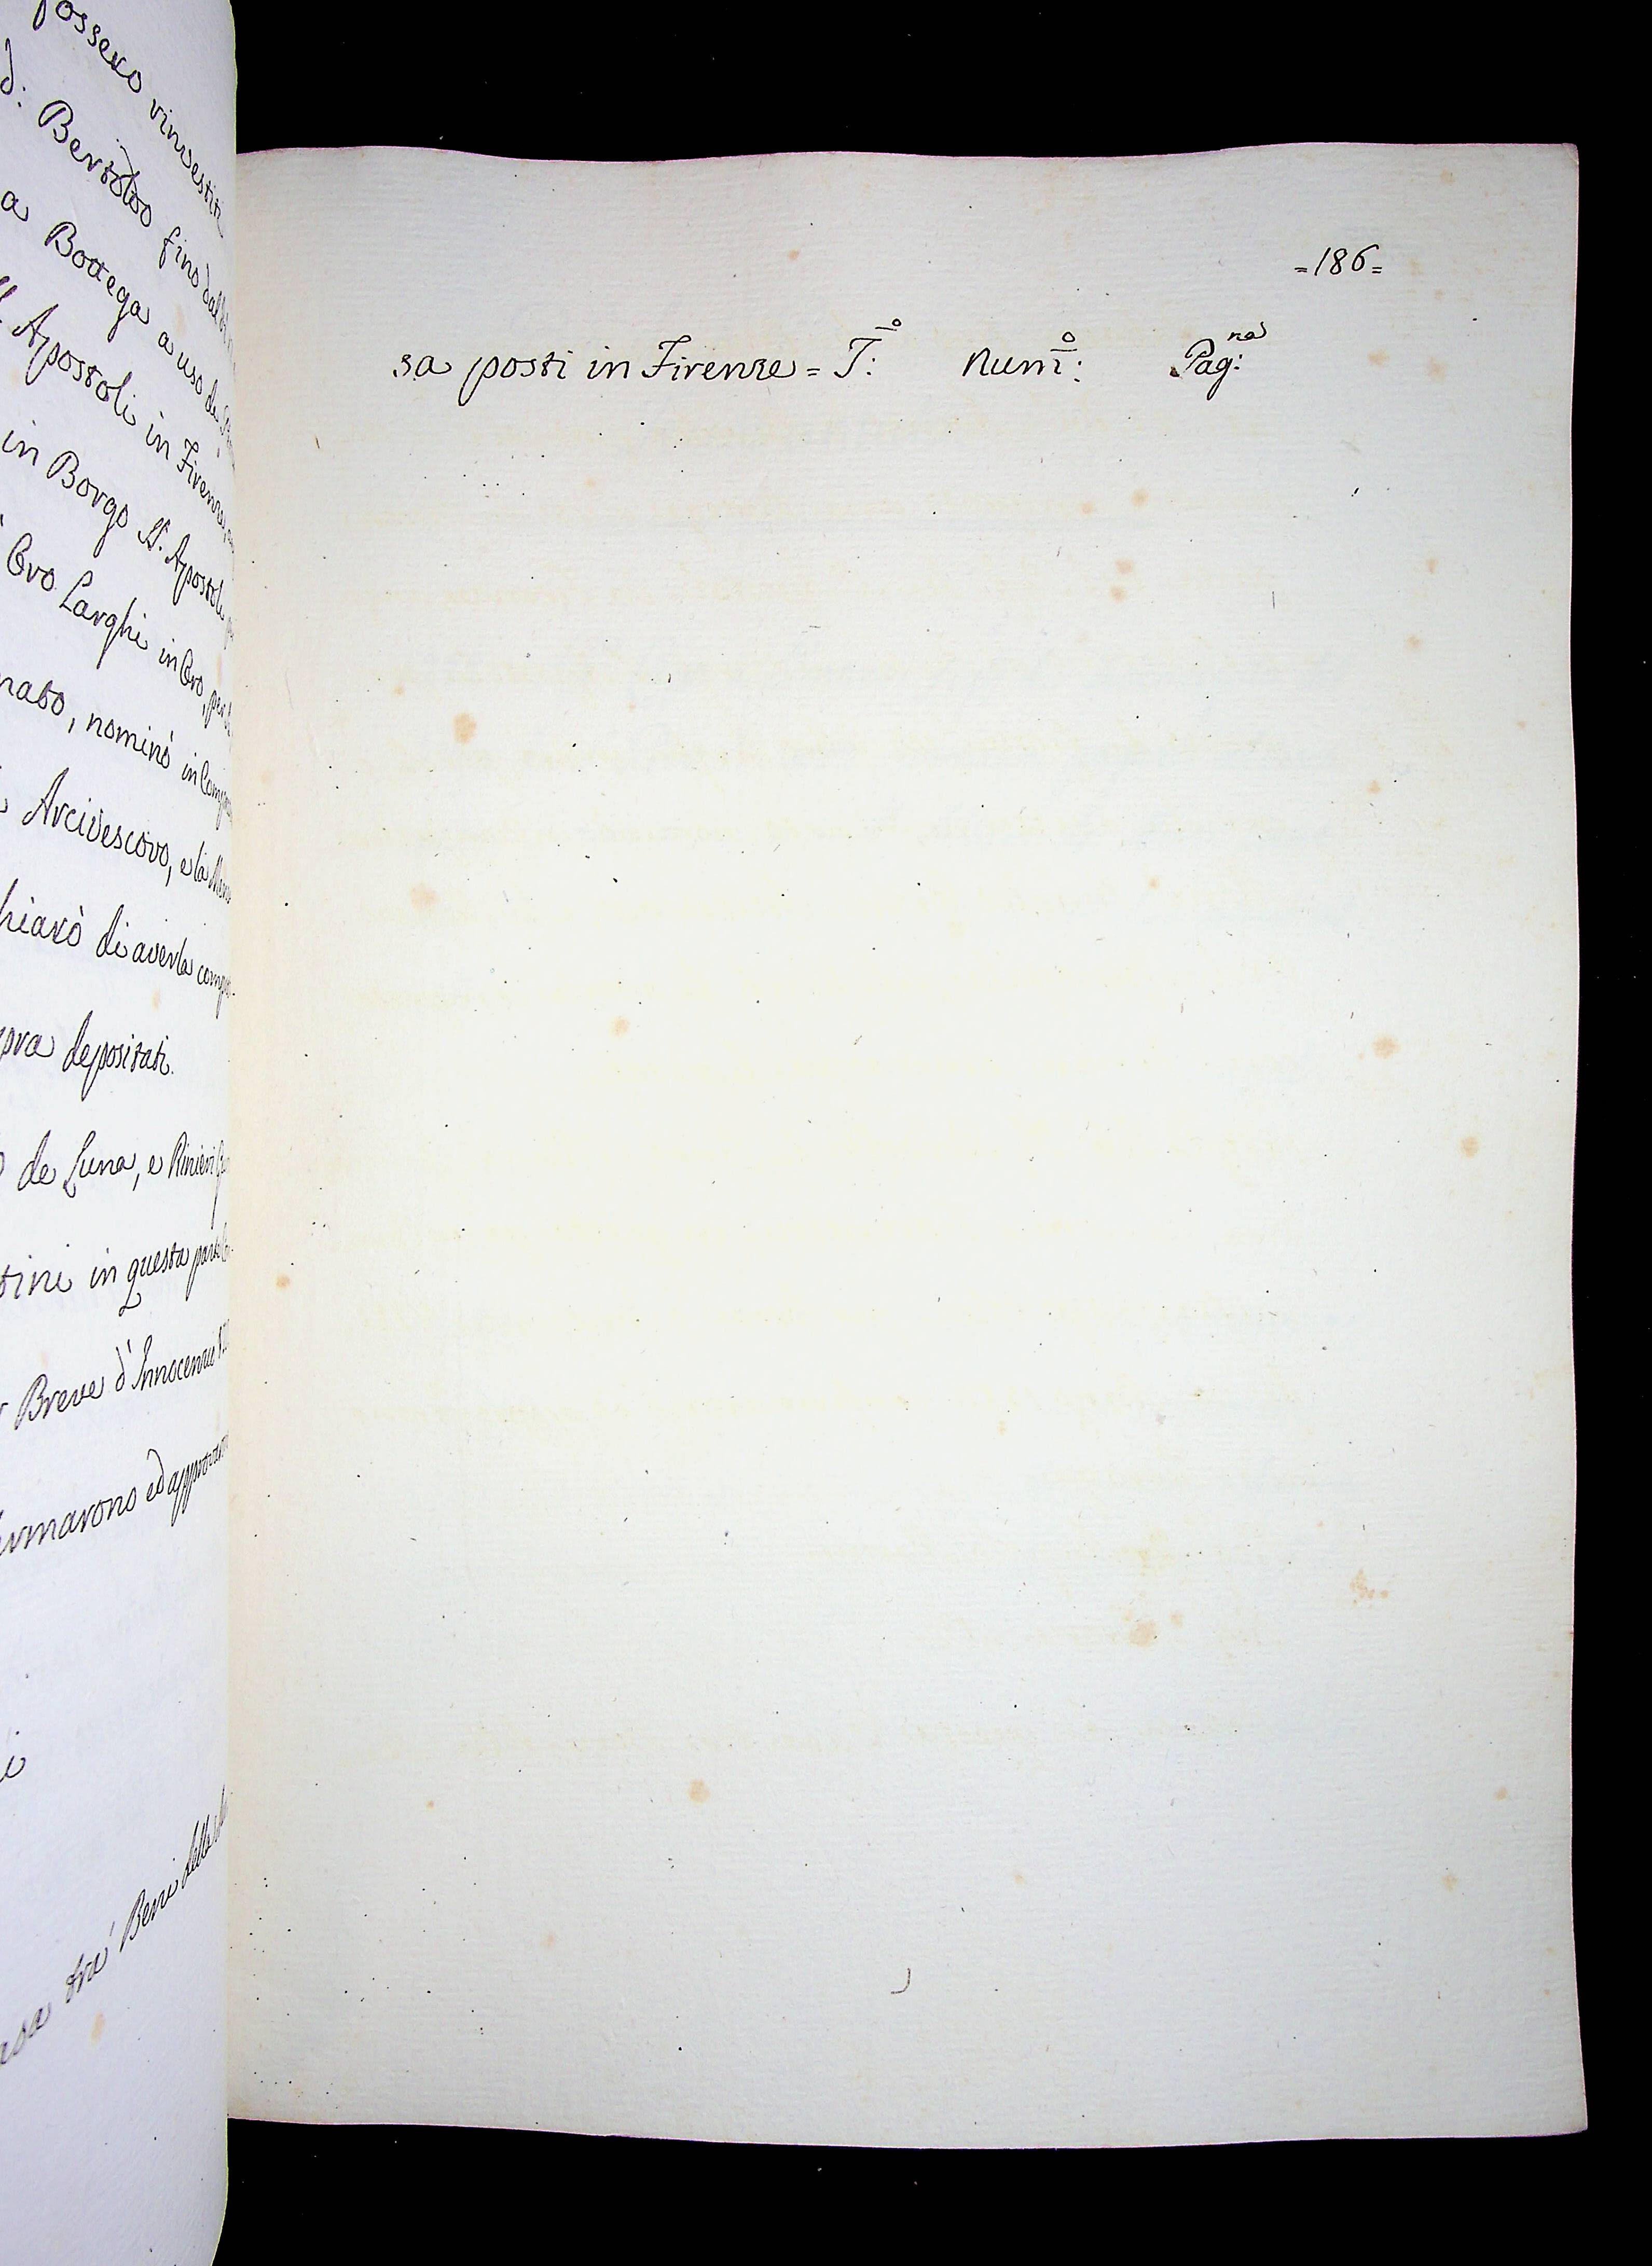 possero rinvestiti
d: Bertoldo fino dal
a Bottega a uso di
Apostoli in Firenze
in Borgo SS. Apostoli
Oro Larghi in Oro, per
nato, nominò in
Arcivescovo, e la
hiarò di averla
pra depositati.
de Luna, e Rinieri
tini in questa parte
Breve d'Innocenzio
ermarono ed approvarono
i
asa trà Beni della
=186=
sa posti in Firenze = T:º Num:º Pag:na